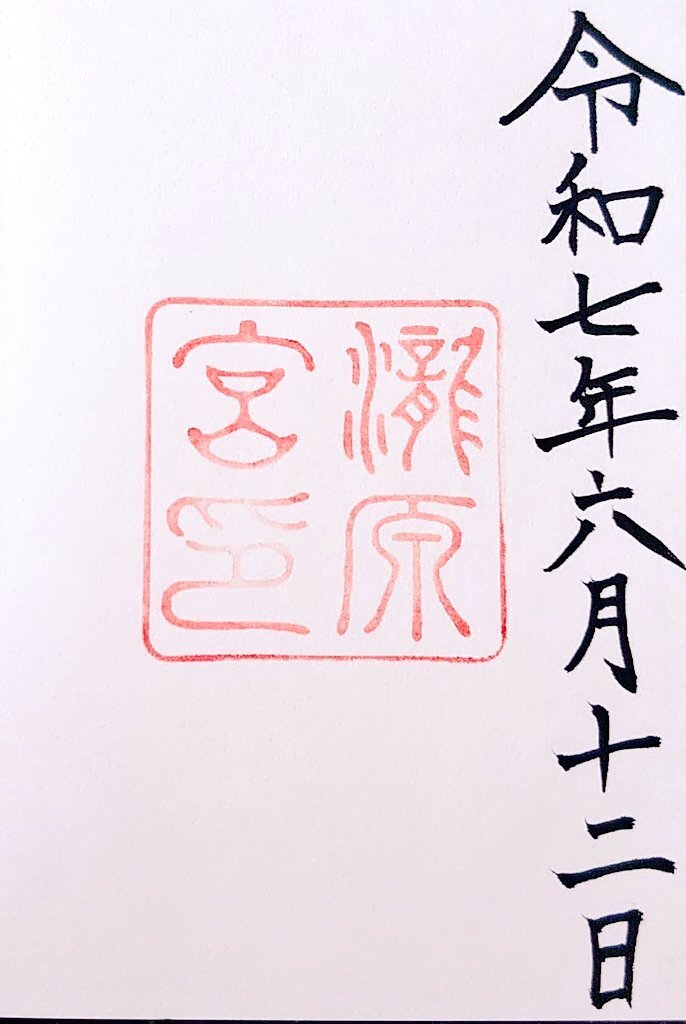 令和七年六月十二日
瀧原
宮印